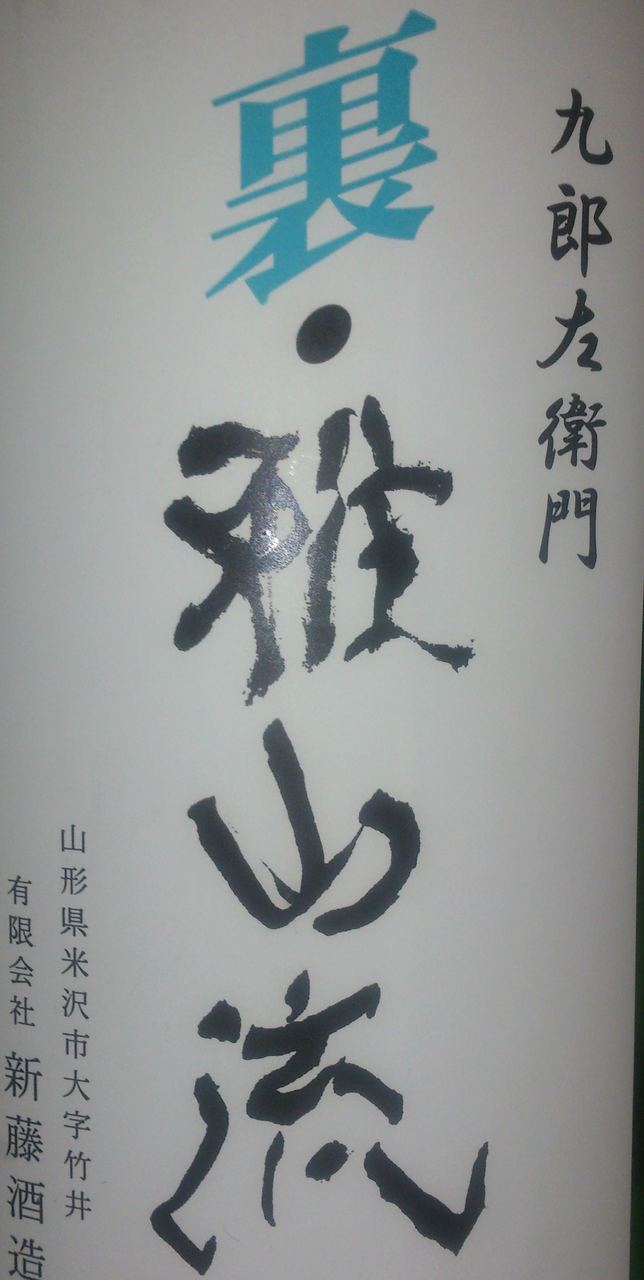 九郎左衛門
裏・雅山流
山形県米沢市大字竹井
有限会社 新藤酒造